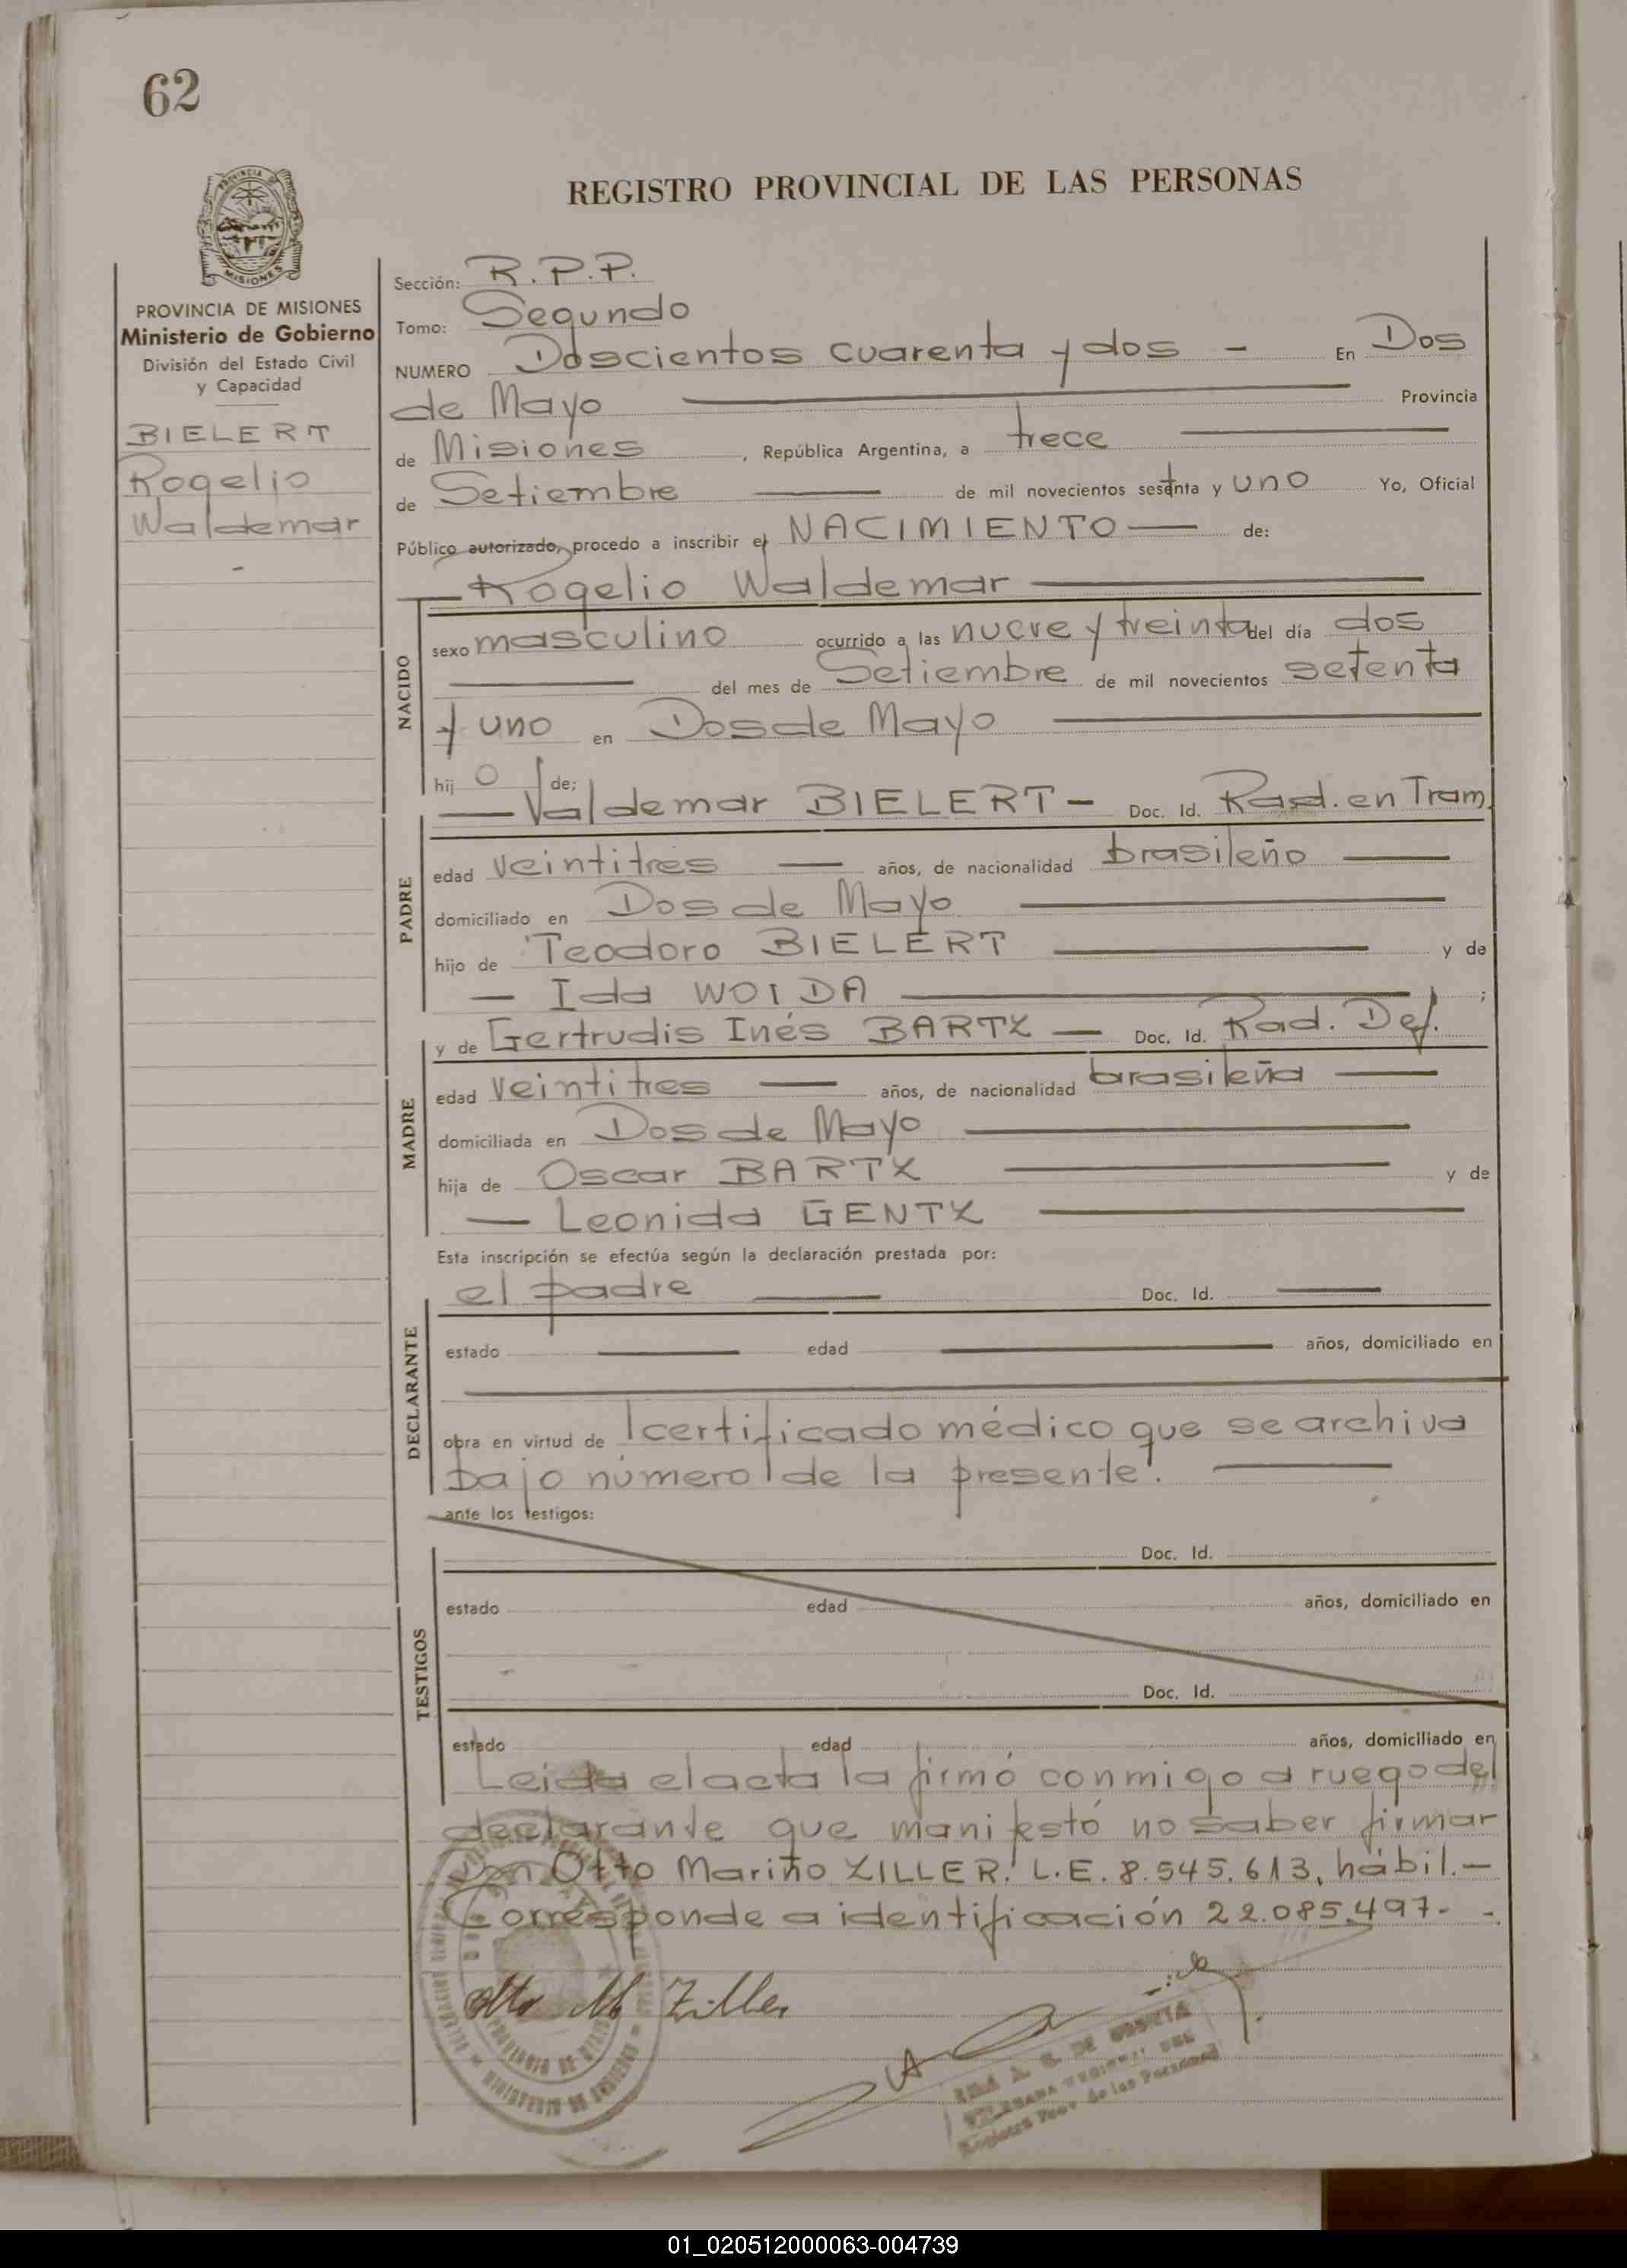 62
REGISTRO PROVINCIAL DE LAS PERSONAS
PROVINCIA DE MISIONES
Ministerio de Gobierno
División del Estado Civil
y Capacidad
BIELERT
Rogelio
Waldemar
Sección: R.P.P.
Tomo: Segundo
NUMERO Doscientos cuarenta y dos - En Dos
de Mayo Provincia
de Misiones, República Argentina, a trece
de Setiembre de mil novecientos setenta y uno Yo, Oficial
Público autorizado, procedo a inscribir el NACIMIENTO de:
Rogelio Waldemar
NACIDO
sexo masculino ocurrido a las nueve y treinta del día dos
del mes de Setiembre de mil novecientos setenta
y uno en Dos de Mayo
hij o de;
Valdemar BIELERT - Doc. Id. Rad. en Tram.
PADRE
edad veintitrés años, de nacionalidad brasileño
domiciliado en Dos de Mayo
hijo de Teodoro BIELERT y de
Ida WOIDA ;
y de Gertrudis Inés BARTZ Doc. Id. Rad. Def.
MADRE
edad veintitres años, de nacionalidad brasileña
domiciliada en Dos de Mayo
hija de Oscar BARTZ y de
Leonida GENTZ
Esta inscripción se efectúa según la declaración prestada por:
el padre Doc. Id.
DECLARANTE
estado edad años, domiciliado en
obra en virtud de certificado médico que se archiva
bajo número de la presente.
ante los testigos:
Doc. Id.
TESTIGOS
estado edad años, domiciliado en
Doc. Id.
estado edad años, domiciliado en
Leida el acta la firmó conmigo a ruego del
declarante que manifestó no saber firmar
Don Otto Mariño ZILLER. L.E. 8.545.613, hábil.-
Corresponde a identificación 22.085.497.- -
Otto M Ziller
PROVINCIA DE
MINISTERIO DE
Registro Prov. de las Personas
01_020512000063-004739